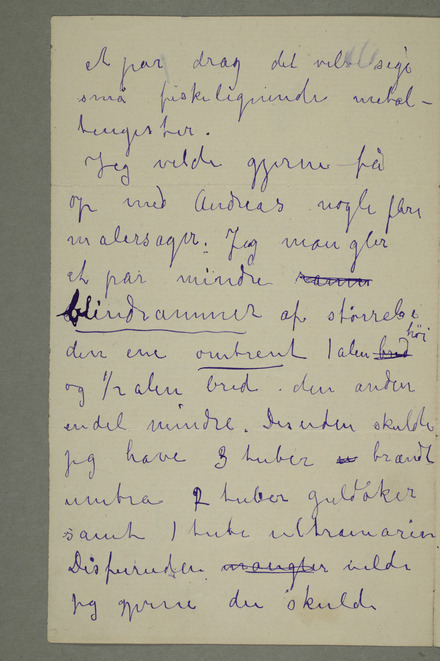 et par drag det vil sige
små fiskelignende metal-
tingester.
Jeg vilde gjerne få
op med Andreas nogle flere
malersager. Jeg mangler
et par mindre rammer
blindrammer af størrelse
den ene omtrent 1 alen bred høi
og 1/2 alen bred. den anden
endel mindre. Desuden skulde
jeg have 3 tuber brændt
umbra 2 tuber guldoker
samt 1 tube ultramarin
Desforuden mangler vilde
jeg gjerne du skulde